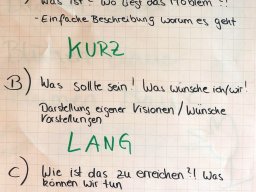 Was ist? Wo liegt das Problem?!
- Einfache Beschreibung worum es geht
KURZ
B) Was sollte sein! Was wünsche ich/wir!
Darstellung eigener Visionen / Wünsche
Vorstellungen
LANG
C) Wie ist das zu erreichen?! Was
können wir tun